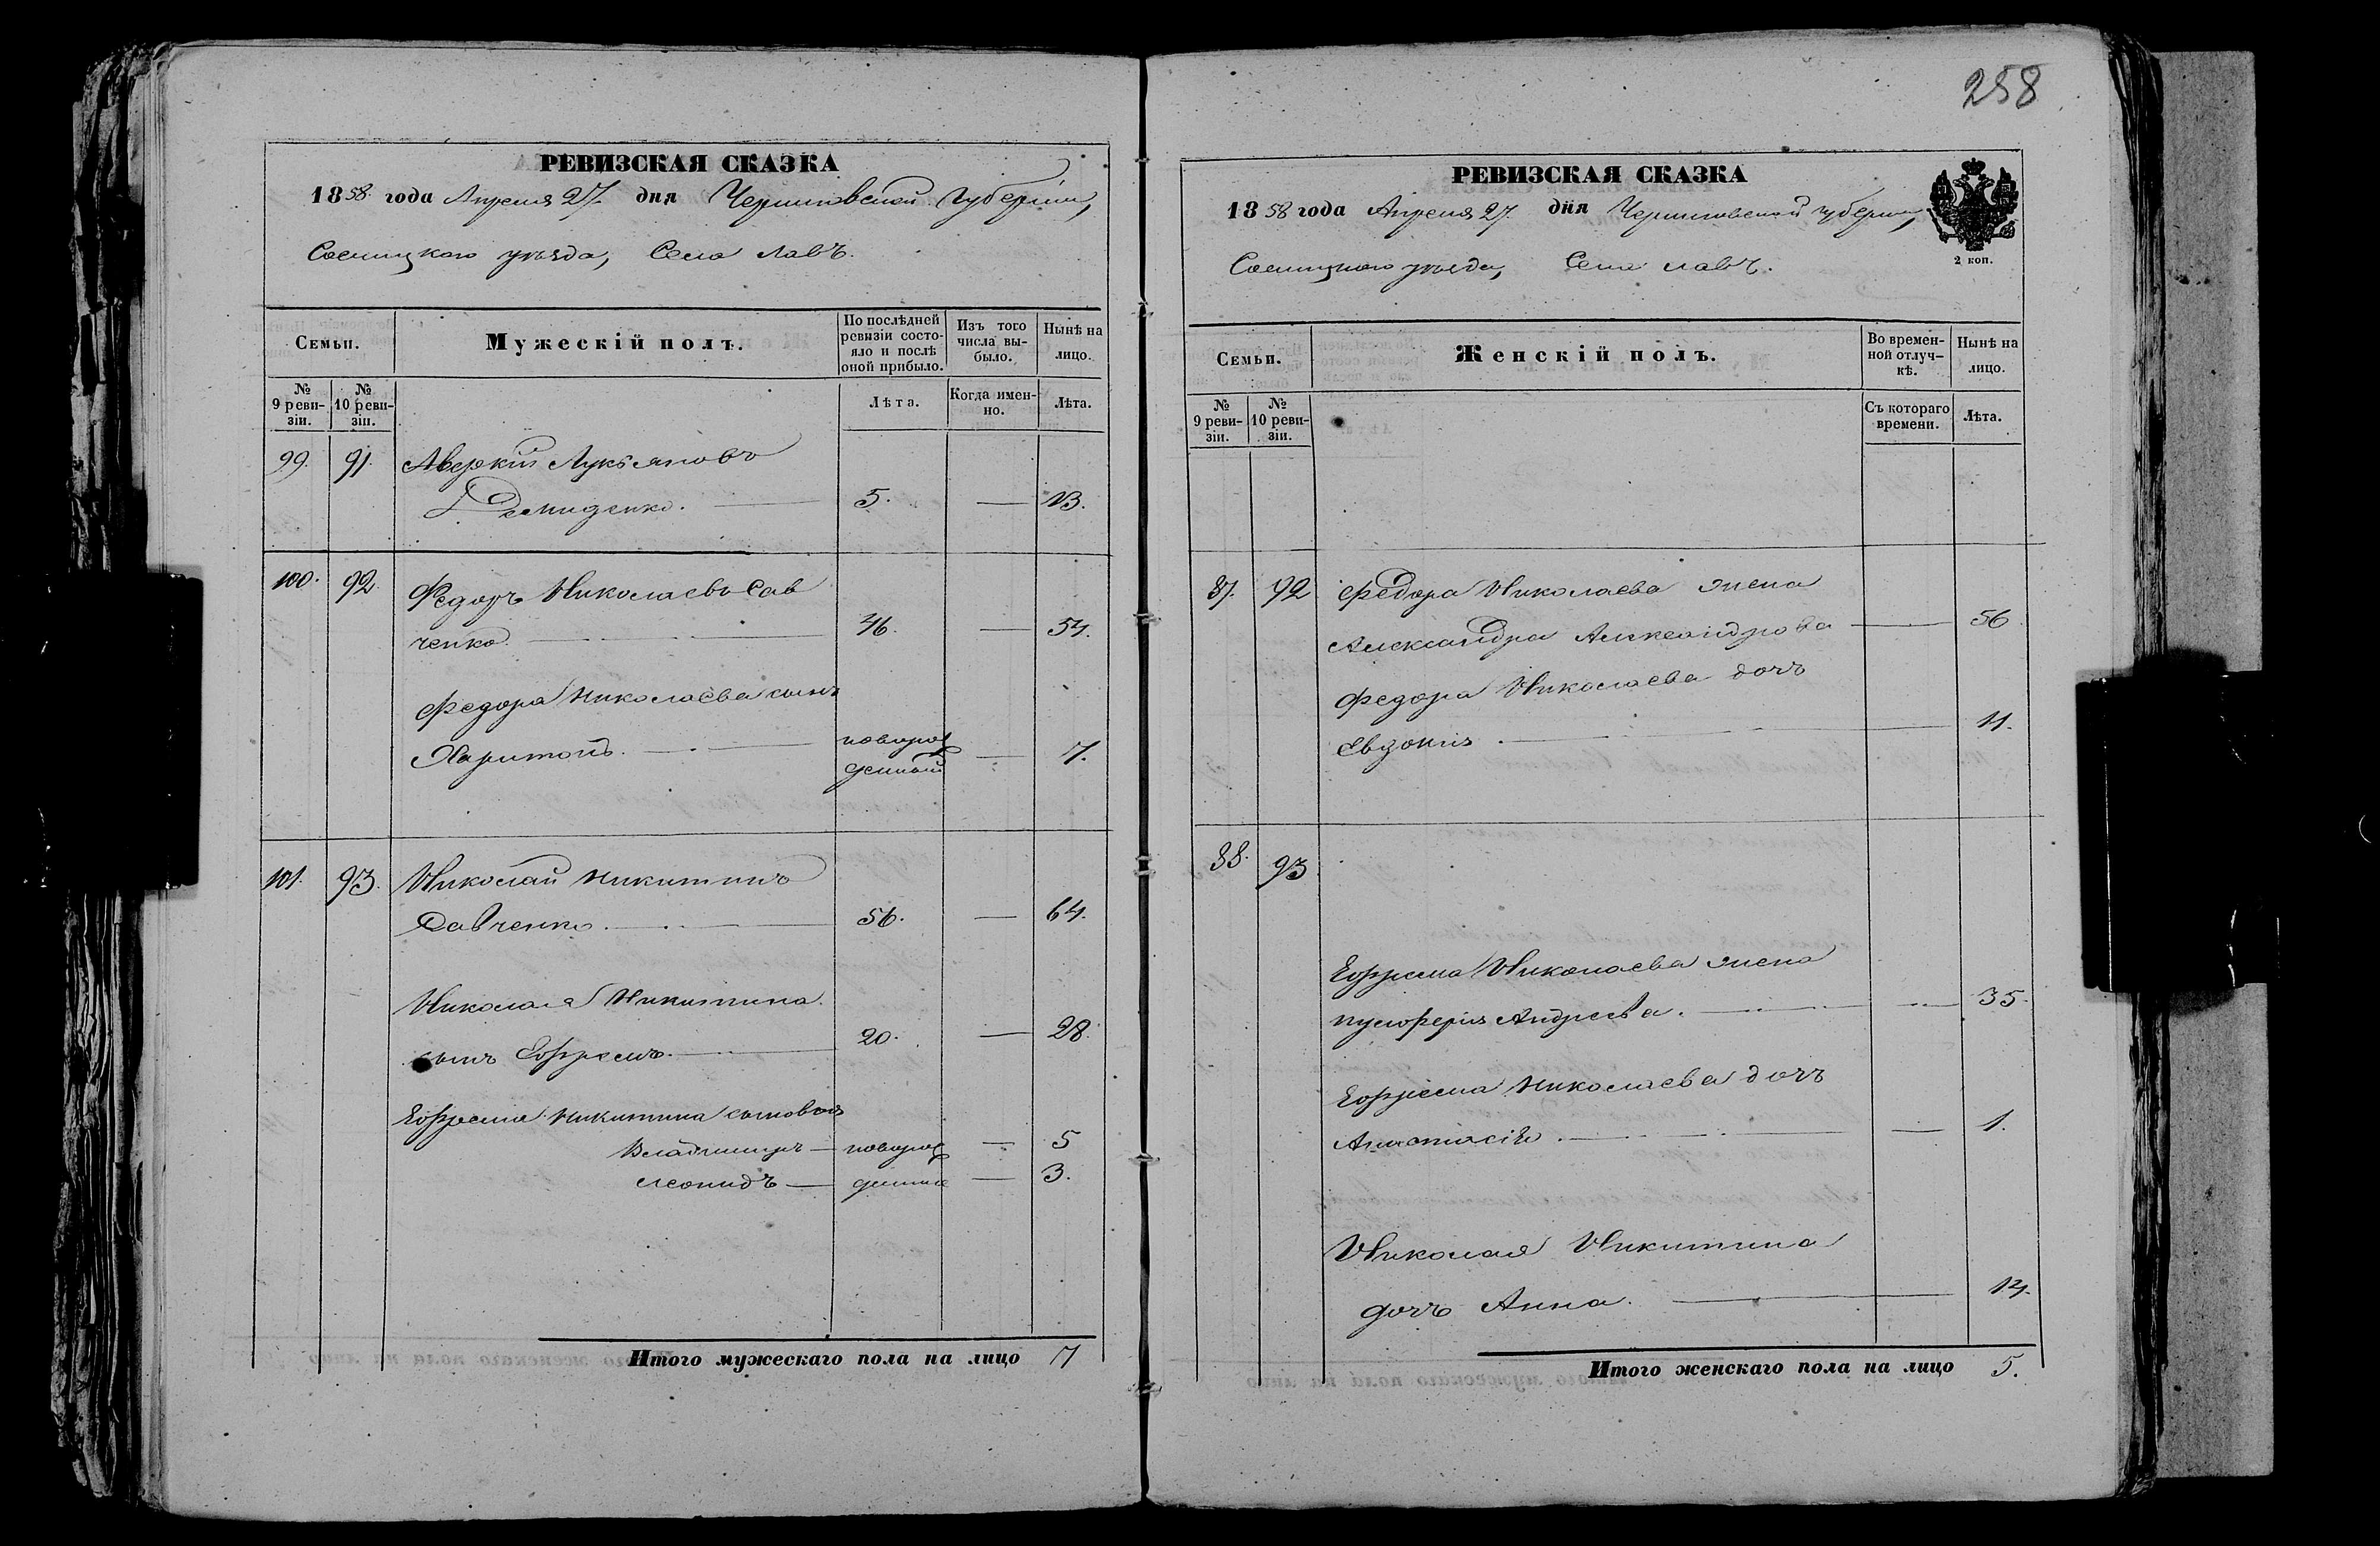 258
РЕВИЗСКАЯ СКАЗКА
1858 года Апреля 27 дня Черниговской Губернии,
Сосницкого уѣзда, Села Лавъ.
Семьи.
Мужескій полъ.
По послѣдней ревизіи состояло и послѣ оной прибыло.
Изъ того числа выбыло.
Нынѣ на лицо.
№ 9 ревизіи.
№ 10 ревизіи.
Лѣта.
Когда именно.
Лѣта.
99. 91. Аверкій Лукьяновъ
Демиденко. 5. — 13.
100. 92. Федоръ Николаевъ Сав
ченко. 46. — 54.
Федора Николаева сынъ
Харитонъ. новорож
денный — 7.
101. 93. Николай Никитинъ
Савченко. 56. — 64.
Николая Никитина
сынъ Ефремъ. 20. — 28.
Ефрема Никитина сыновья
Владимиръ — новорож — 5
Леонидъ — денные — 3.
Итого мужескаго пола на лицо 7
РЕВИЗСКАЯ СКАЗКА
1858 года Апреля 27 дня Черниговской губернии,
Сосницкого уѣзда, Села Лавъ.
2 коп.
Семьи.
Женскій полъ.
Во временной отлучкѣ.
Нынѣ на лицо.
№ 9 ревизіи.
№ 10 ревизіи.
Съ котораго времени.
Лѣта.
87. 92 Федора Николаева жена
Александра Александрова — 56
Федора Николаева дочь
Евдокия. — 11.
88. 93
Ефрема Николаева жена
Андреева. — 35.
Ефрема Николаева дочь
Анастасія. — 1.
Николая Никитина
дочь Анна. — 14.
Итого женскаго пола на лицо 5.